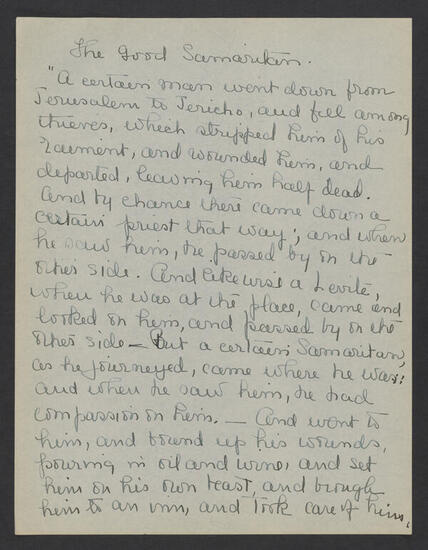 The Good Samaritan.
"A certain man went down from
Jerusalem to Jericho, and fell among
thieves, which stripped him of his
raiment, and wounded him, and
departed, leaving him half dead.
And by chance there came down a
certain priest that way; and when
he saw him, he passed by on the
other side. And likewise a Levite,
when he was at the place, came and
looked on him, and passed by on the
other side — But a certain Samaritan,
as he journeyed, came where he was:
and when he saw him, he had
compassion on him. — And went to
him, and bound up his wounds,
pouring in oil and wine, and set
him on his own beast, and brough
him to an inn, and took care of him.